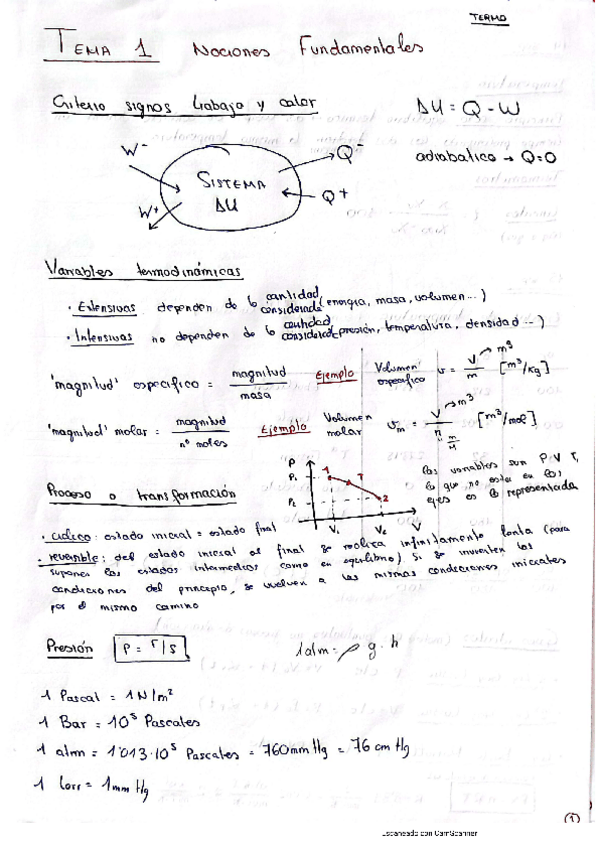 TERMO
TEMA 1 Nociones Fundamentales
Criterio signos trabajo y calor
ΔU = Q - W
adiabatico → Q=0
W⁻
Q⁻
SISTEMA
ΔU
W+
Q+
Variables termodinámicas
· Extensivas dependen de la cantidad considerada (energia, masa, volumen...)
· Intensivas no dependen de la cantidad considerada (presión, temperatura, densidad...)
'magnitud' especifico = magnitud / masa Ejemplo Volumen especifico v = V / m → m³ [m³/kg]
'magnitud' molar = magnitud / nº moles Ejemplo Volumen molar vm = V / n → m³ [m³/mol]
m/M
Proceso o transformación
P
P₁
P₂
1
T
2
V₁ V₂ V
las variables son P V T,
lo que no esta en los
ejes es la representada
· ciclico: estado inicial = estado final
· reversible: del estado inicial al final se realiza infinitamente lenta (para
suponer los estados intermedios como en equilibrio) Si se invierten las
condiciones del principio, se vuelven a las mismas condiciones iniciales
por el mismo camino
Presión P = F/S 1 atm = ρ g · h
1 Pascal = 1N/m²
1 Bar = 10⁵ Pascales
1 atm = 1'013·10⁵ Pascales = 760mmHg = 76 cm Hg
1 torr = 1mmHg
1
Escaneado con CamScanner